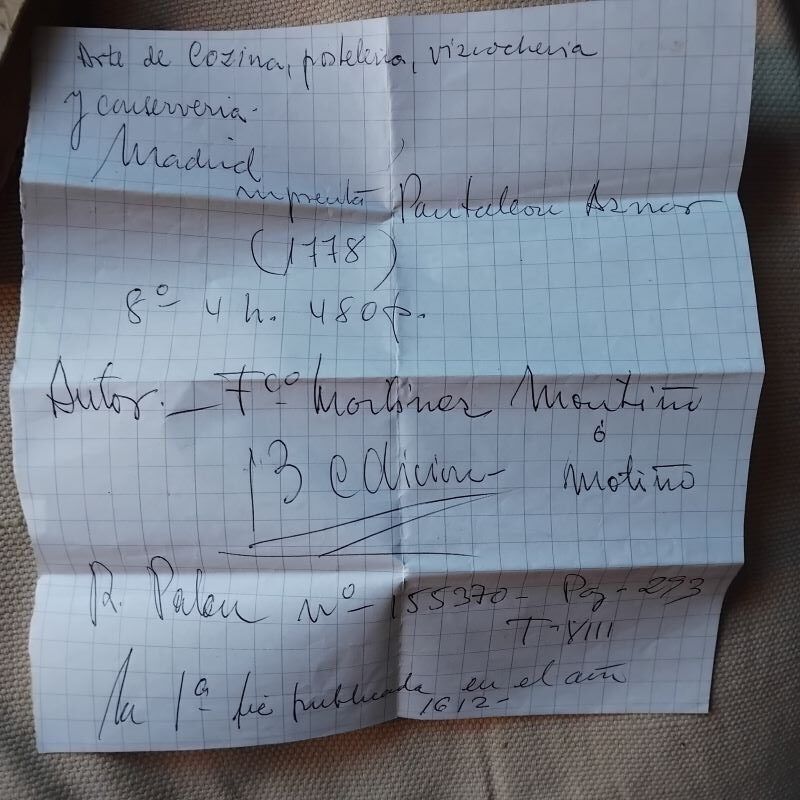 Arte de Cozina, pasteleria, vizcocheria
y conserveria.
Madrid
imprenta Pantaleon Aznar
(1778)
8º 4 h. 480 p.
Autor. — Fco Martinez Montiño
ó
13 edicion — Motiño
R. Palau nº - 155370 - Pg - 293
T - VIII
La 1ª fué publicada en el año
1612 -